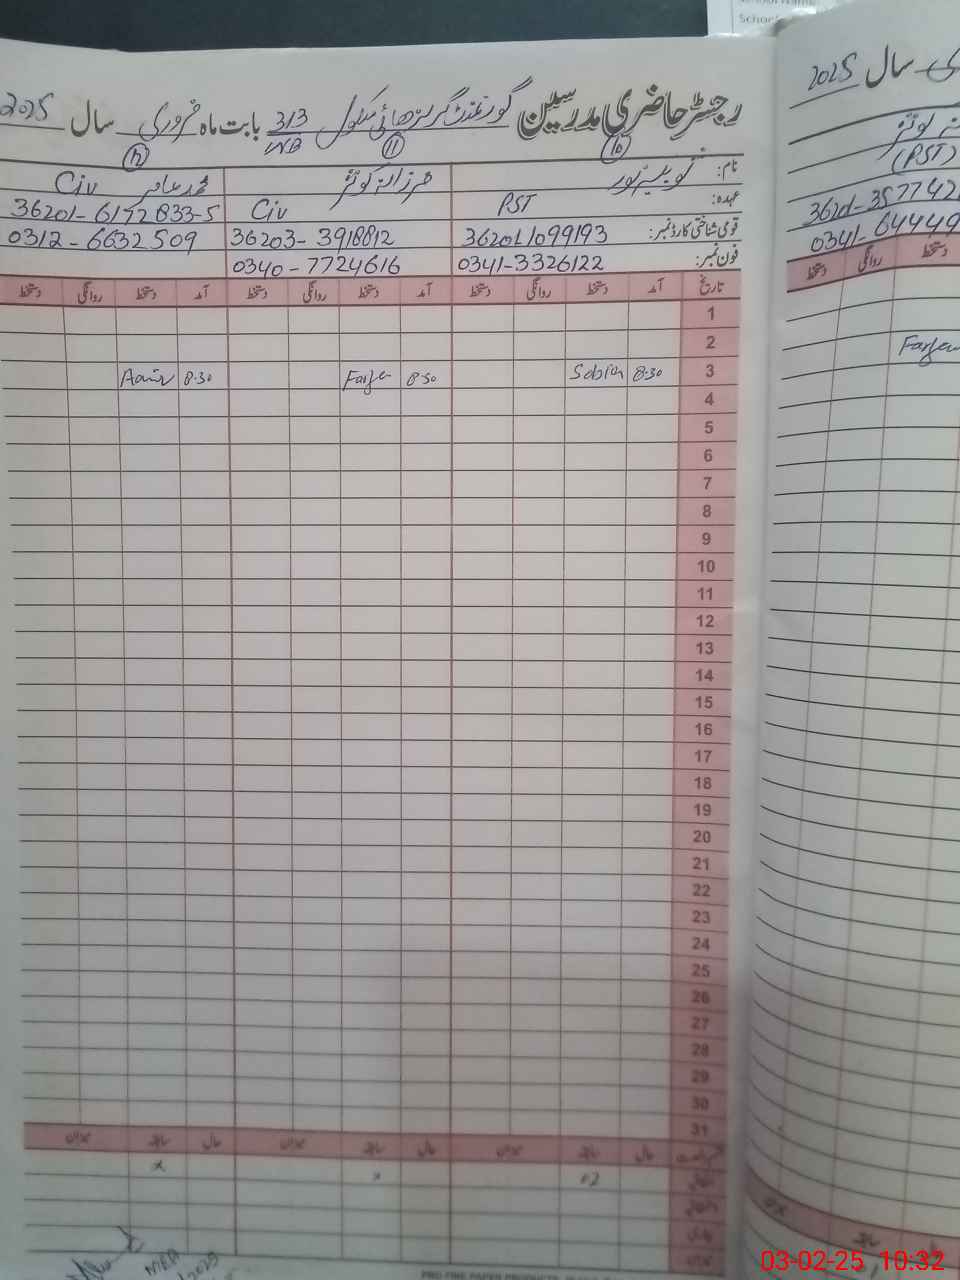 School Name
School
رجسٹر حاضری مدرسین گورنمنٹ گرلز ھائی سکول 313/WB بابت ماہ فروری سال 2025
(10) (11) (12)
نام:
محمد عامر
عہدہ: PST Civ Civ
قومی شناختی کارڈ نمبر: 362011099193 36203-3918812 36201-6172833-5
فون نمبر: 0341-3326122 0340-7724616 0312-6632509
تاریخ آمد دستخط روانگی دستخط آمد دستخط روانگی دستخط آمد دستخط روانگی دستخط
1
2
3 8.30 Sobia 8.30 Farze 8.30 Aamir
4
5
6
7
8
9
10
11
12
13
14
15
16
17
18
19
20
21
22
23
24
25
26
27
28
29
30
31
حال سابقہ میزان حال سابقہ میزان حال سابقہ میزان
02 x x
سال 2025
کوثر
(PST)
3620-3577742
0341-64449
دستخط روانگی دستخط
03-02-25 10:32